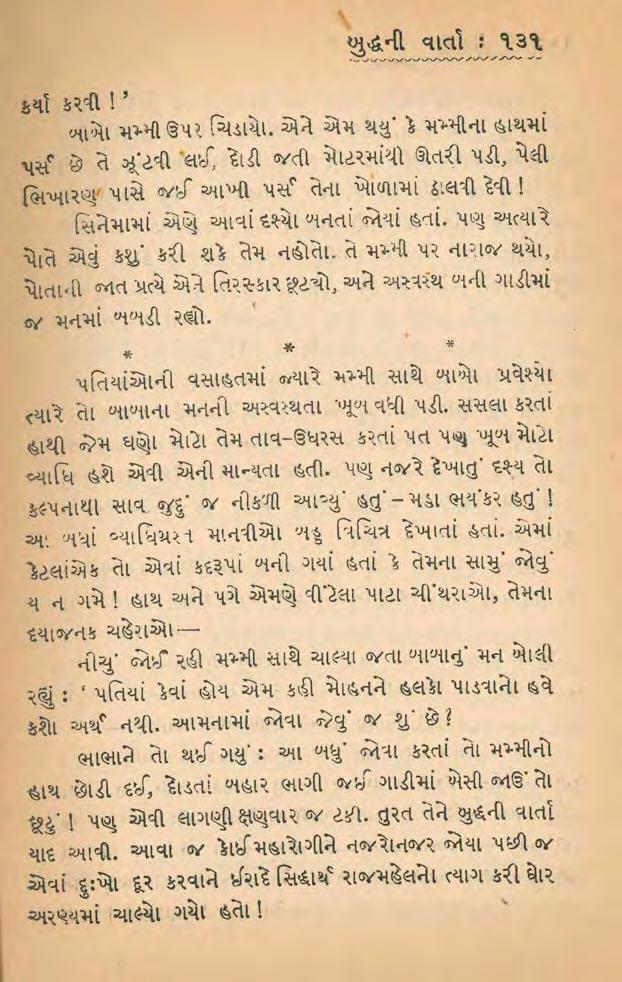 બુદ્ધની વાર્તા : ૧૩૧
કર્યા કરવી !’
બાબો મમ્મી ઉપર ચિડાયો. એને એમ થયું કે મમ્મીના હાથમાં
પર્સ છે તે ઝૂંટવી લઈ, દોડી જતી મોટરમાંથી ઊતરી પડી, પેલી
ભિખારણ પાસે જઈ આખી પર્સ તેના ખોળામાં ઠાલવી દેવી !
સિનેમામાં એણે આવાં દૃશ્યો બનતાં જોયાં હતાં. પણ અત્યારે
પોતે એવું કશું કરી શકે તેમ નહોતો. તે મમ્મી પર નારાજ થયો,
પોતાની જાત પ્રત્યે એને તિરસ્કાર છૂટ્યો, અને અસ્વસ્થ બની ગાડીમાં
જ મનમાં બબડી રહ્યો.
* * *
પતિયાંઓની વસાહતમાં જ્યારે મમ્મી સાથે બાબો પ્રવેશ્યો
ત્યારે તો બાબાના મનની અસ્વસ્થતા ખૂબ વધી પડી. સસલા કરતાં
હાથી જેમ ઘણો મોટો તેમ તાવ-ઉધરસ કરતાં પત પણ ખૂબ મોટો
વ્યાધિ હશે એવી એની માન્યતા હતી. પણ નજરે દેખાતું દૃશ્ય તો
કલ્પનાથી સાવ જુદું જ નીકળી આવ્યું હતું – મહા ભયંકર હતું !
આ બધાં વ્યાધિગ્રસ્ત માનવીઓ બહુ વિચિત્ર દેખાતાં હતાં. એમાં
કેટલાંએક તો એવાં કદરૂપાં બની ગયાં હતાં કે તેમના સામું જોવું
ય ન ગમે ! હાથ અને પગે એમણે વીંટેલા પાટા ચીંથરાઓ, તેમના
દયાજનક ચહેરાઓ—
નીચું જોઈ રહી મમ્મી સાથે ચાલ્યા જતા બાબાનું મન બોલી
રહ્યું : ‘ પતિયાં કેવાં હોય એમ કહી મોહનને હલકો પાડવાનો હવે
કશો અર્થ નથી. આમનામાં જોવા જેવું જ શું છે ?
ભાભાને તો થઈ ગયું : આ બધું જોવા કરતાં તો મમ્મીનો
હાથ છોડી દઈ, દોડતાં બહાર ભાગી જઈ ગાડીમાં બેસી જાઉં તો
છૂટું ! પણ એવી લાગણી ક્ષણવાર જ ટકી. તુરત તેને બુદ્ધની વાર્તા
યાદ આવી. આવા જ કોઈ મહારોગીને નજરોનજર જોયા પછી જ
એવાં દુઃખો દૂર કરવાને ઈરાદે સિદ્ધાર્થ રાજમહેલનો ત્યાગ કરી ઘોર
અરણ્યમાં ચાલ્યો ગયો હતો !